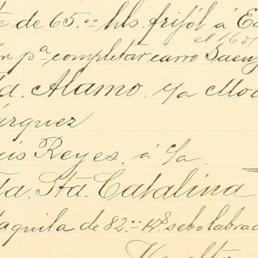 te de 65.= hls. frijol á Es
el 1601
n pa. completar carro Saenz
d. Alamo. y a Mod
árquez
uis Reyes. á la
da. Sta. Catalina
aquila de 82.= Ks. sebo labrad